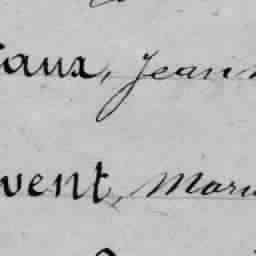 aux, Jean
vent, Mari